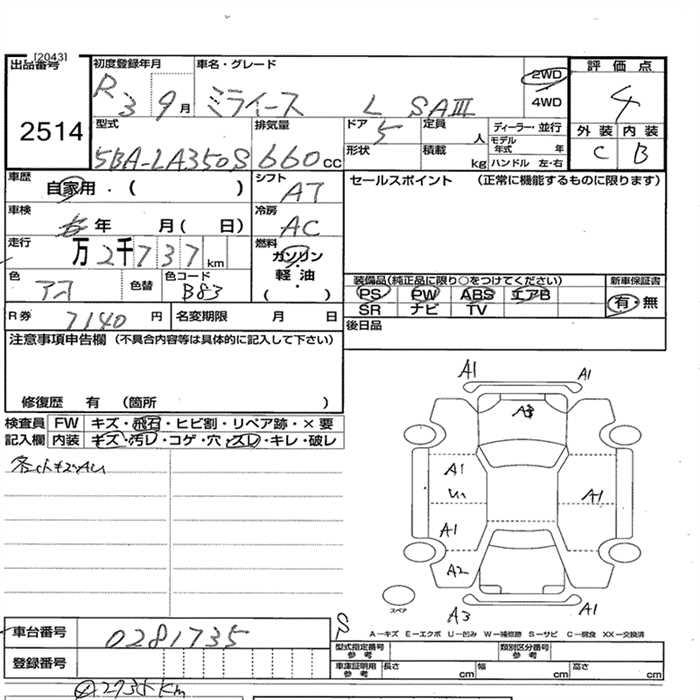 [2043]
出品番号 2514
初度登録年月 R3 9月
車名・グレード ミライース L SAⅢ
2WD
4WD
評価点 4
外装 内装
C B
型式 5BA-LA350S
排気量 660cc
ドア 5
定員 人
ディーラー・並行
モデル年式 年
形状
積載 kg
ハンドル 左・右
車歴 自家用・( )
シフト AT
セールスポイント (正常に機能するものに限ります)
車検 年 月( 日)
冷房 AC
走行 万2千737km
燃料 ガソリン・軽油 ( )
色 アオ
色替
色コード B83
装備品(純正品に限り○をつけてください)
PS PW ABS エアB
SR ナビ TV
新車保証書 有・無
R券 7140円
名変期限 月 日
後日品
注意事項申告欄 (不具合内容等は具体的に記入して下さい)
修復歴 有 (箇所 )
検査員記入欄
FW キズ・飛石・ヒビ割・リペア跡・×要
内装 キズ・汚レ・コゲ・穴・スレ・キレ・破レ
A1 A1
A3
A1
A1
A1
A2
A3 A1
スペア
S
A―キズ E―エクボ U―凹み W―補修跡 S―サビ C―腐食 XX―交換済
車台番号 0281735
登録番号
型式指定番号 参考
類別区分番号 参考
車庫証明用 参考 長さ cm 幅 cm 高さ cm